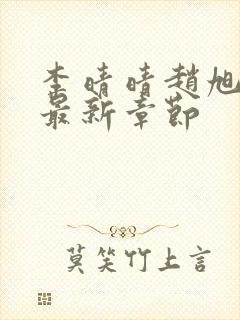 李晴晴趙旭
最新章節
莫笑竹上言